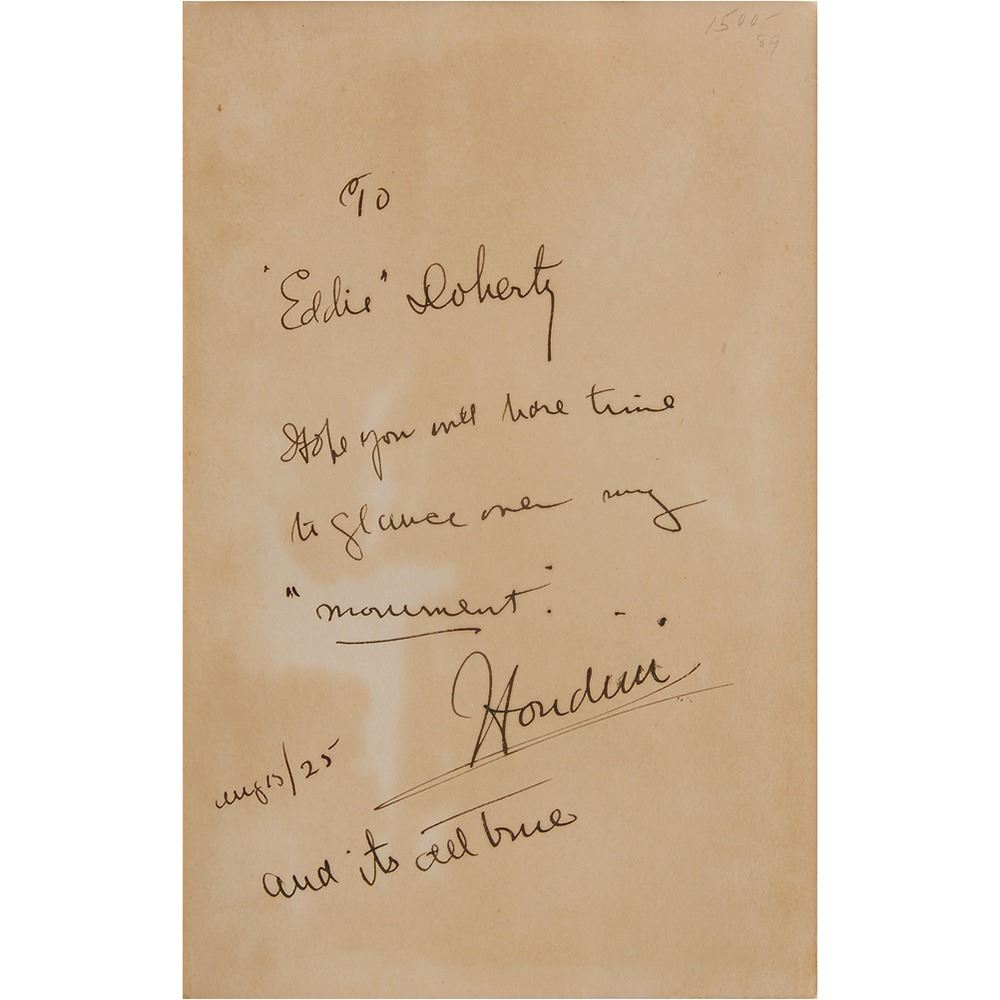 1500-
89
To
"Eddie" Doherty
Hope you will have time
to glance over my
"monument".
Houdini
Aug 13/25
and its all true